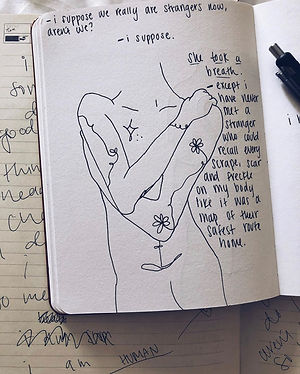 -i suppose we really are strangers now,
aren't we?
-i suppose.
she took a
breath.
- except i
have never
met a
stranger
who could
recall every
scrape, scar
and freckle
on my body
like it was a
map of their
safest route
home.
i
so
d
good
thin
need
cha
d
o me
i am HUMAN